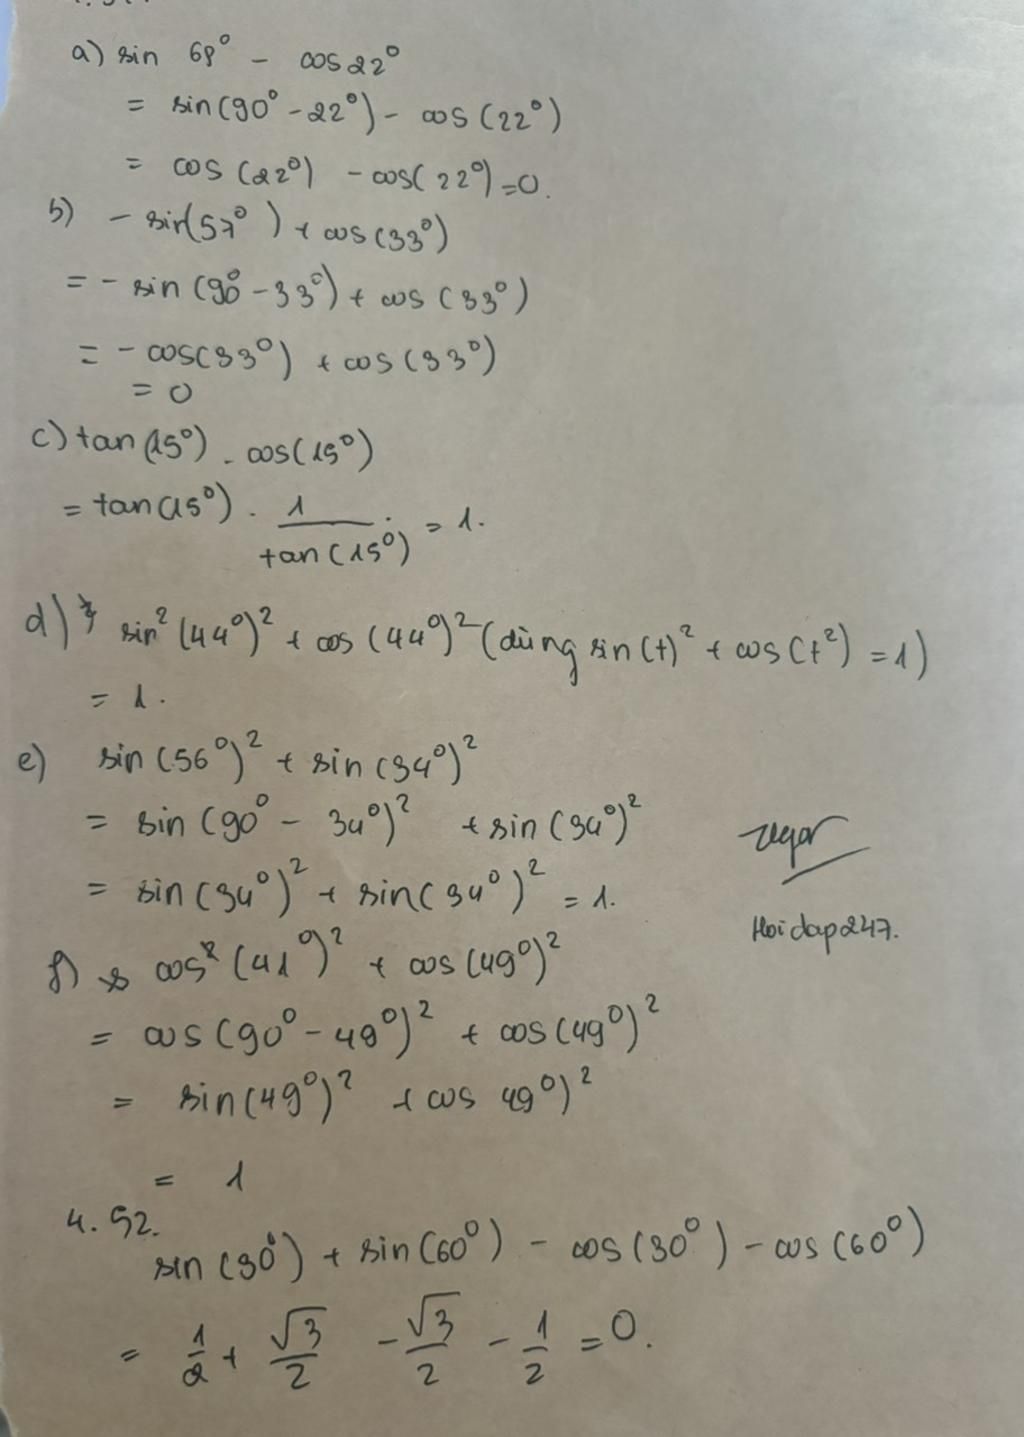 a) sin 68° - cos 22°
= sin(90° - 22°) - cos (22°)
= cos (22°) - cos(22°) = 0.
b) - sin(57°) + cos (33°)
= - sin (90° - 33°) + cos (33°)
= - cos(33°) + cos (33°)
= 0
c) tan (15°) . cos(15°)
= tan(15°) . 1/tan(15°) = 1.
d) sin² (44°)² + cos (44°)² (dùng sin(t)² + cos(t²) = 1)
= 1.
e) sin (56°)² + sin (34°)²
= sin (90° - 34°)² + sin (34°)²
= sin (34°)² + sin( 34°)² = 1.
f) cos² (41°)² + cos (49°)²
= cos (90° - 49°)² + cos (49°)²
= sin (49°)² + cos 49°)²
Hoidap247.
= 1
4.52.
sin (30°) + sin (60°) - cos (30°) - cos (60°)
= 1/2 + √3/2 - √3/2 - 1/2 = 0.